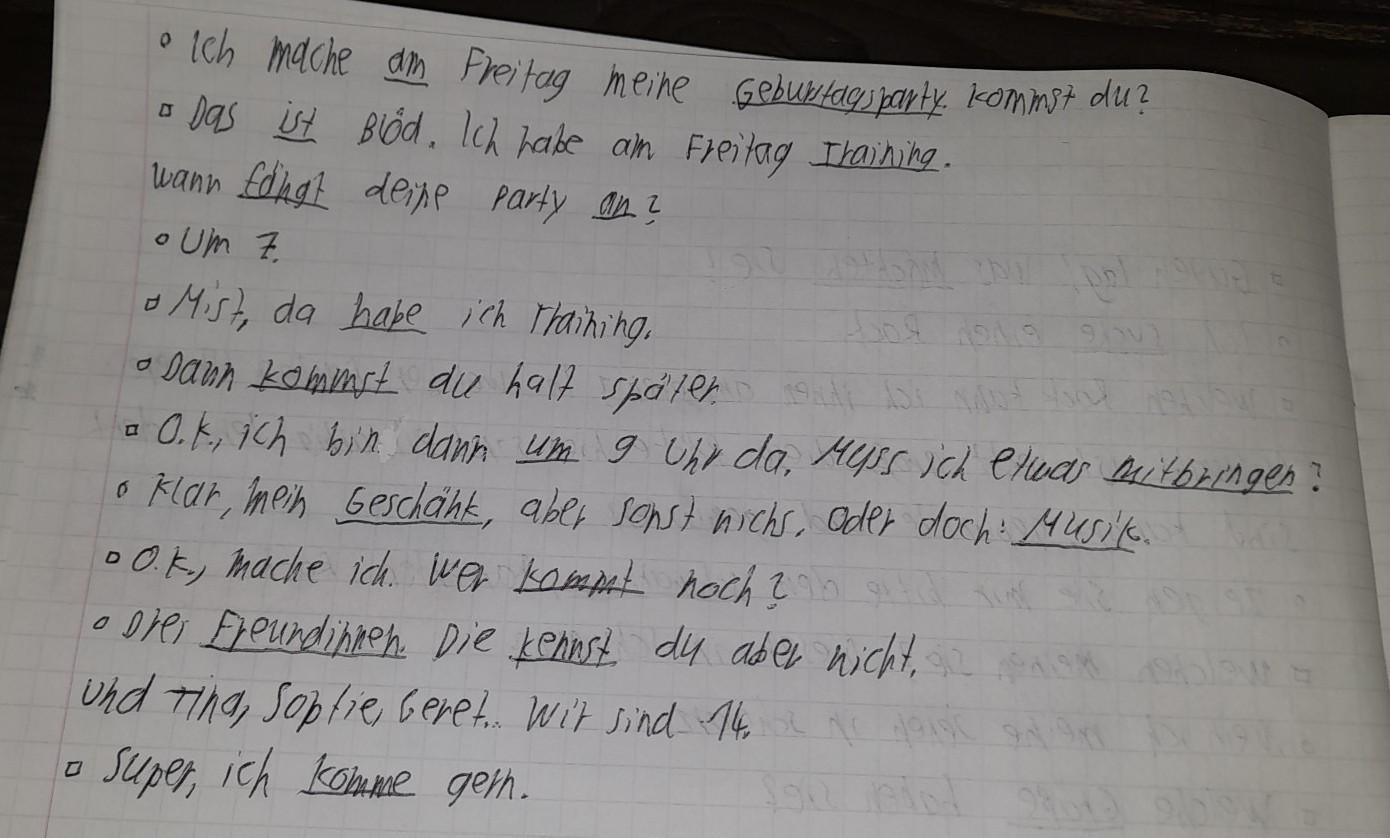 ○ Ich mache am Freitag meine Geburtagsparty. kommst du?
□ Das ist Blöd. Ich habe am Freitag Training.
wann fängt deine Party an?
○ Um 7.
□ Mist, da habe ich Training.
○ Dann kommst du halt später.
□ O.k., ich bin dann um 9 Uhr da. Muss ich etwas mitbringen?
○ Klar, mein Geschähk, aber sonst nichs. Oder doch: Musik.
□ O.k., mache ich. Wer kommt noch?
○ Drei Freundinnen. Die kennst du aber nicht.
und Tina, Sophie, Geret... Wir sind 14.
□ Super, ich komme gern.